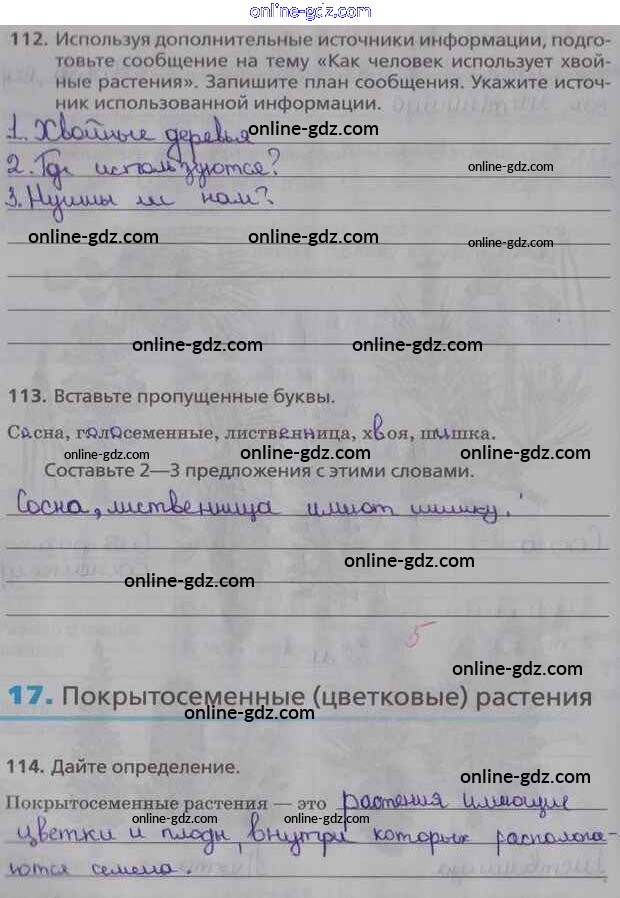 online-gdz.com
112. Используя дополнительные источники информации, подго-
товьте сообщение на тему «Как человек использует хвой-
ные растения». Запишите план сообщения. Укажите источ-
ник использованной информации.
1. Хвойные деревья online-gdz.com
2. Где используются? online-gdz.com
3. Нужны ли нам?
online-gdz.com online-gdz.com online-gdz.com
online-gdz.com online-gdz.com
113. Вставьте пропущенные буквы.
Сосна, голосеменные, лиственница, хвоя, шишка.
online-gdz.com
Составьте 2—3 предложения с этими словами.
Сосна, лиственница имеют шишку.
online-gdz.com
online-gdz.com
5
online-gdz.com
17. Покрытосеменные (цветковые) растения
online-gdz.com
114. Дайте определение.
online-gdz.com
Покрытосеменные растения — это растения имеющие
online-gdz.com online-gdz.com
цветки и плоды, внутри которых располога-
ются семена.